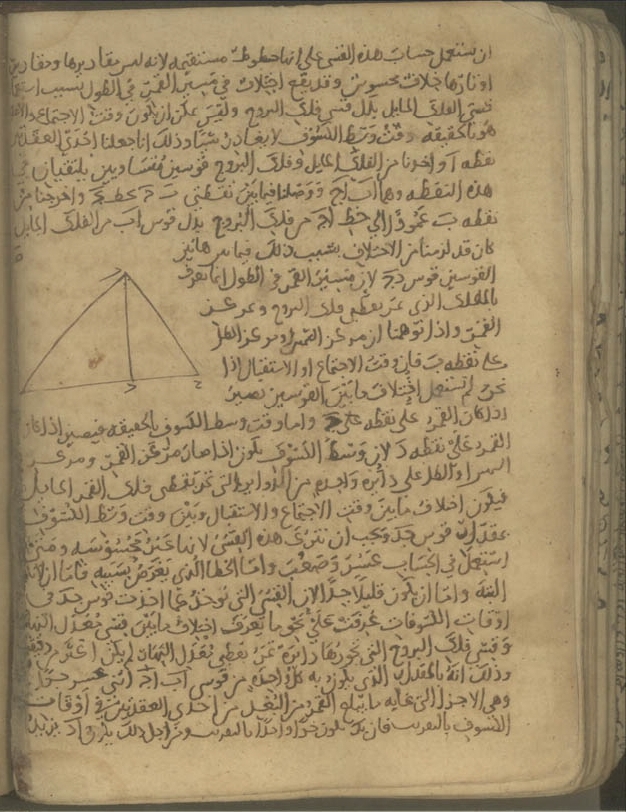 ان نستعمل حساب هذه القسي على انها خطوط مستقيمة لانه ليس مقاديرها ومقادير
اوتارها خلاف محسوس وقد يقع اختلاف في مسير القمر في الطول بسبب استعمال
قسي الفلك المايل بدل قسي فلك البروج وليس يمكن ان يكون وقت الاجتماع والاستقبال
هو بالحقيقة وقت وسط الكسوف لا يغادر شيا وذلك انا جعلنا احدى العقدتين
نقطة آ واخرنا من الفلك المايل وفلك البروج قوسين متساويين يلتقيان على
هذه النقطة وهما اب اج ووصلنا فيما بين نقطتي ب ج بخط بج واخرجنا من
نقطة ب عمودا الى خط اج من فلك البروج بدل قوس اب من الفلك المايل
كان قد لزمنا من الاختلاف بسبب ذلك فيما بين هاتين
القوسين قوس دج لان مسير القمر في الطول انما يعرف
بالفلك الذي يمر بقطبي فلك البروج وبمركز
القمر واذا توهمنا ان مركز الشمس او مركز الظل
على نقطة ب فان وقت الاجتماع او الاستقبال اذا
نحن لم نستعمل اختلاف ما بين القوسين يصير
اذا كان القمر على نقطة ج واما وقت وسط الكسوف بالحقيقة فيصير اذا كان
القمر على نقطة د لان وسط الكسوف يكون اذا صار مركز القمر ومركز
الشمس او الظل على دائرة واحدة من الدواير التي تمر بقطبي فلك القمر المايل
فيكون اختلاف ما بين وقت الاجتماع والاستقبال وبين وقت وسط الكسوف
بمقدار قوس جد ويجب ان نترك هذه القسي لانها غير محسوسة ومتى
استعمل في الحساب عسر وصعب واما الخطا الذي يعرض بسببه فاما ان لا
البتة واما ان يكون قليلا جدا لان القسي التي توخذ كما اخذت قوس جد في
اوقات الكسوفات عرفت على نحو ما يعرف اختلاف ما بين قسي معدل النهار
وقسي فلك البروج التي تحوزها دائرة تمر بقطبي معدل النهار لم يكن اعتبر دقيقتين
وذلك انه بالمقدار الذي يكون به كل واحدة من قوسي اب اج اثنى عشر جزا
وهي الاجزا التي غاية ما يبلغ القمر من البعد من احدى العقدتين في اوقات
الكسوف بالتقريب فان بد يكون جزا واحدا بالتقريب ومن اجل ذلك يكون اد
ب
ج
د